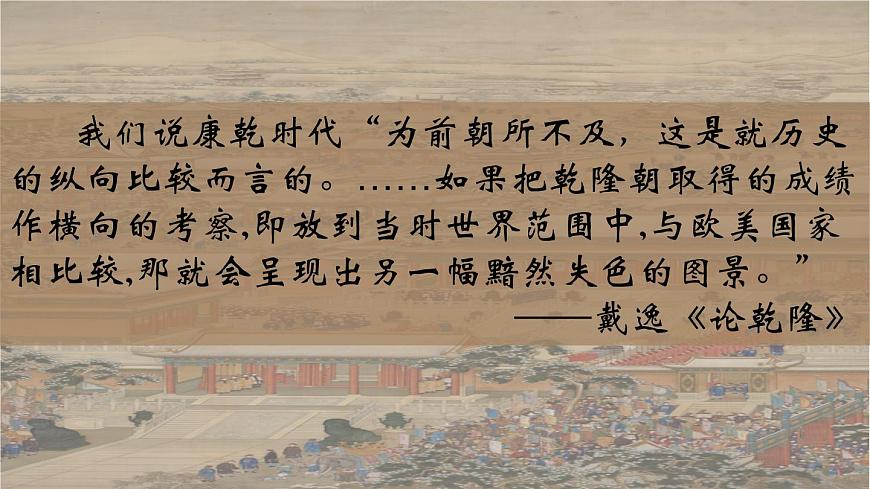 我们说康乾时代“为前朝所不及，这是就历史
的纵向比较而言的。……如果把乾隆朝取得的成绩
作横向的考察,即放到当时世界范围中,与欧美国家
相比较,那就会呈现出另一幅黯然失色的图景。”
——戴逸《论乾隆》